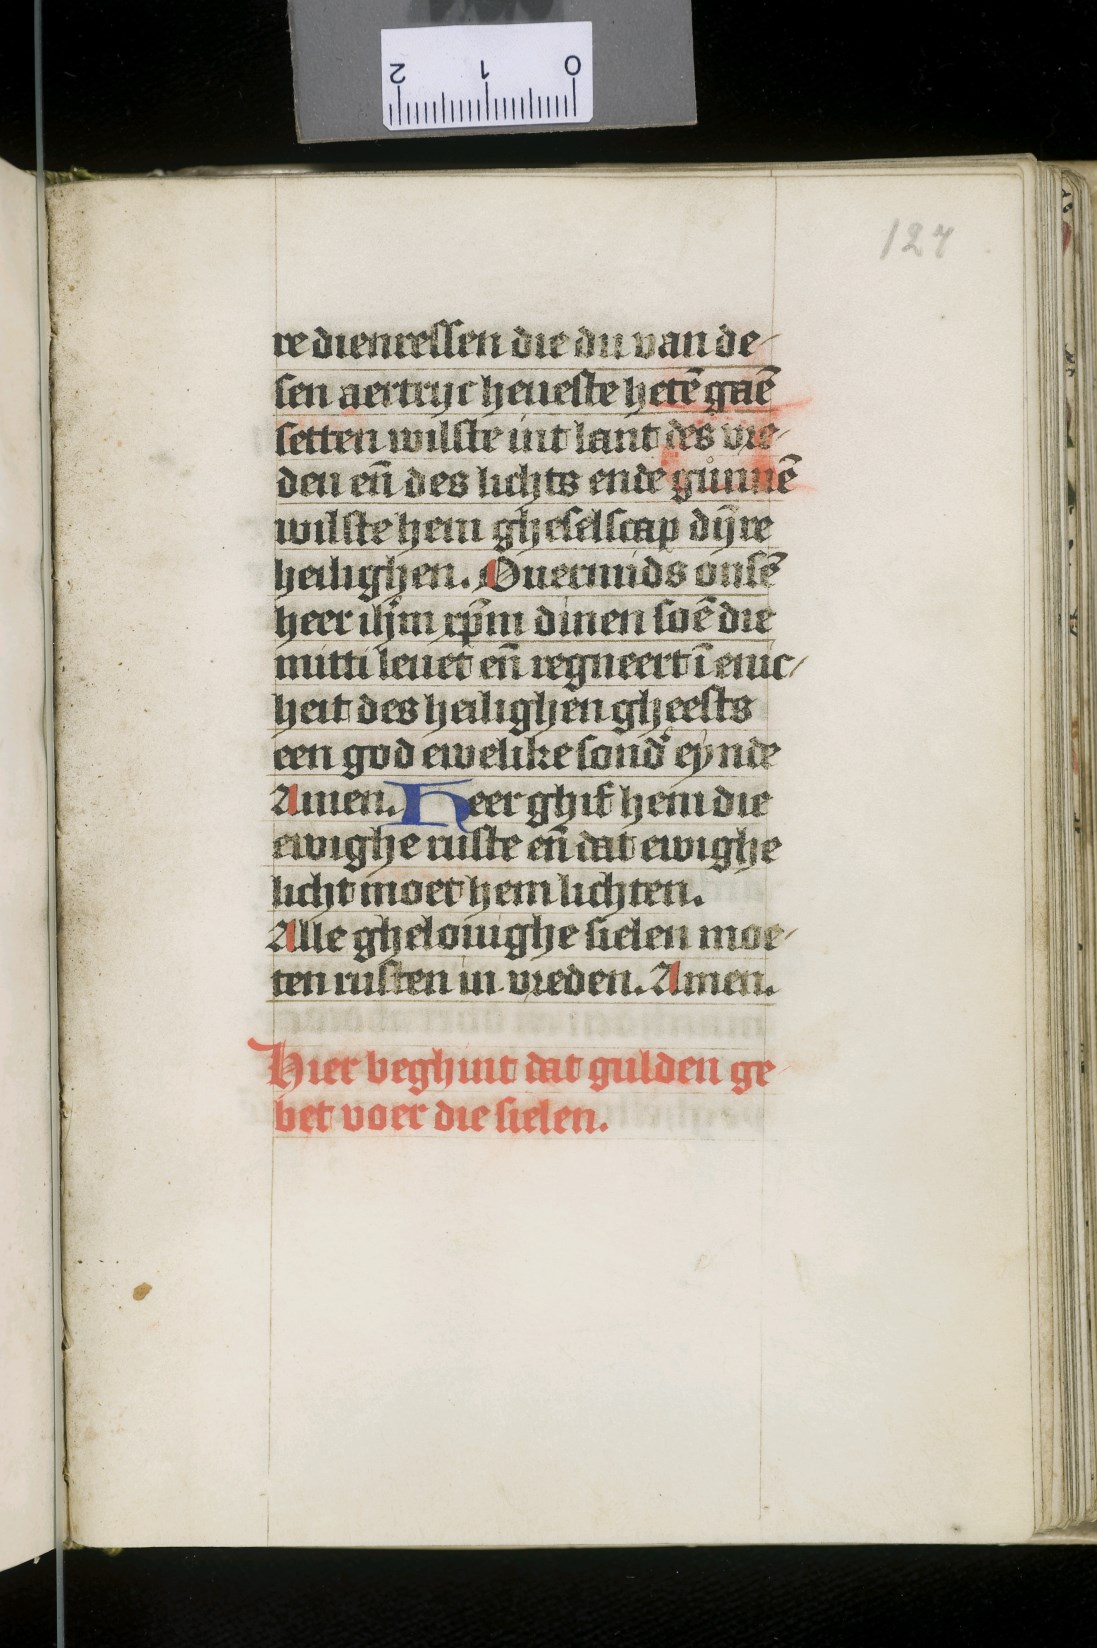 127
re dienressen die du van de-
sen aertrijc heueste hetē gaē
setten wilste int lant des vre-
den eñ des lichts ende gunnē
wilste hem gheselscap dijre
heilighen. Ouermids onsē
heer ihm xpm dinen soē die
mitti leuet eñ regneert ī enic-
heit des heilighen gheests
een god ewelike sond' eynde
Amen. Heer ghif hem die
ewighe ruste eñ dat ewighe
licht moet hem lichten.
Alle ghelouighe sielen moe-
ten rusten in vreden. Amen.
Hier beghint dat gulden ge
bet voer die sielen.
2 1 0